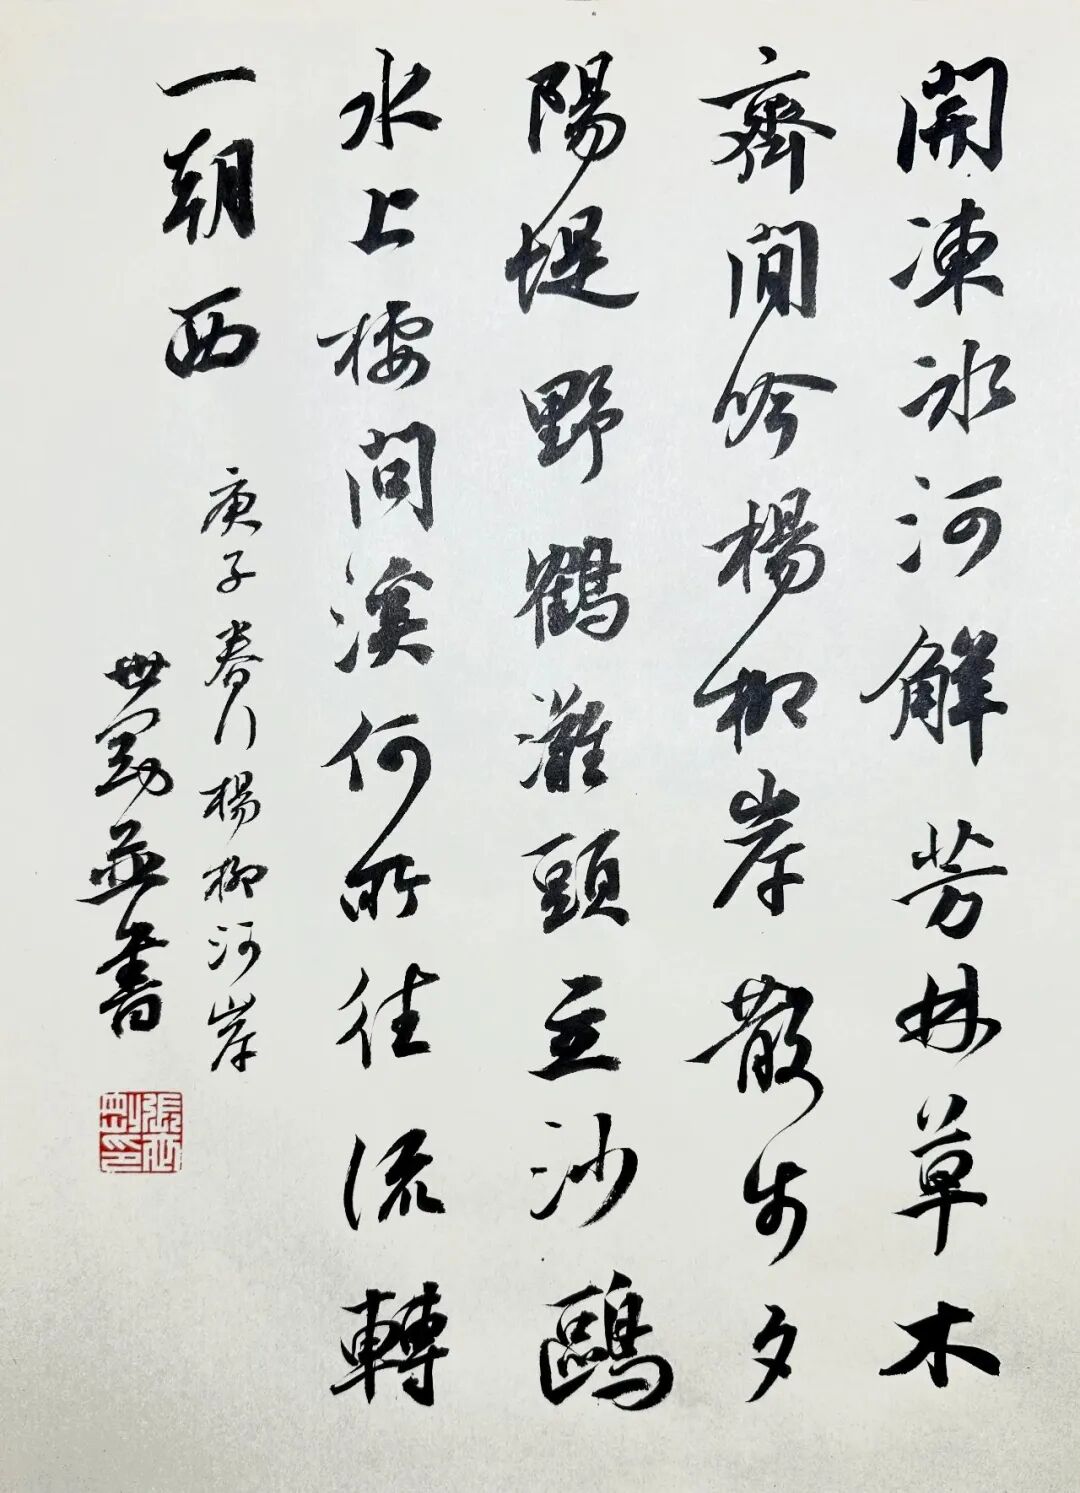 開凍冰河解芳林草木
齊閒吟楊柳岸散步夕
陽堤野鶴灘頭立沙鷗
水上棲問溪何所往流轉
一朝西
庚子春行楊柳河岸
世剛並書
張世剛印